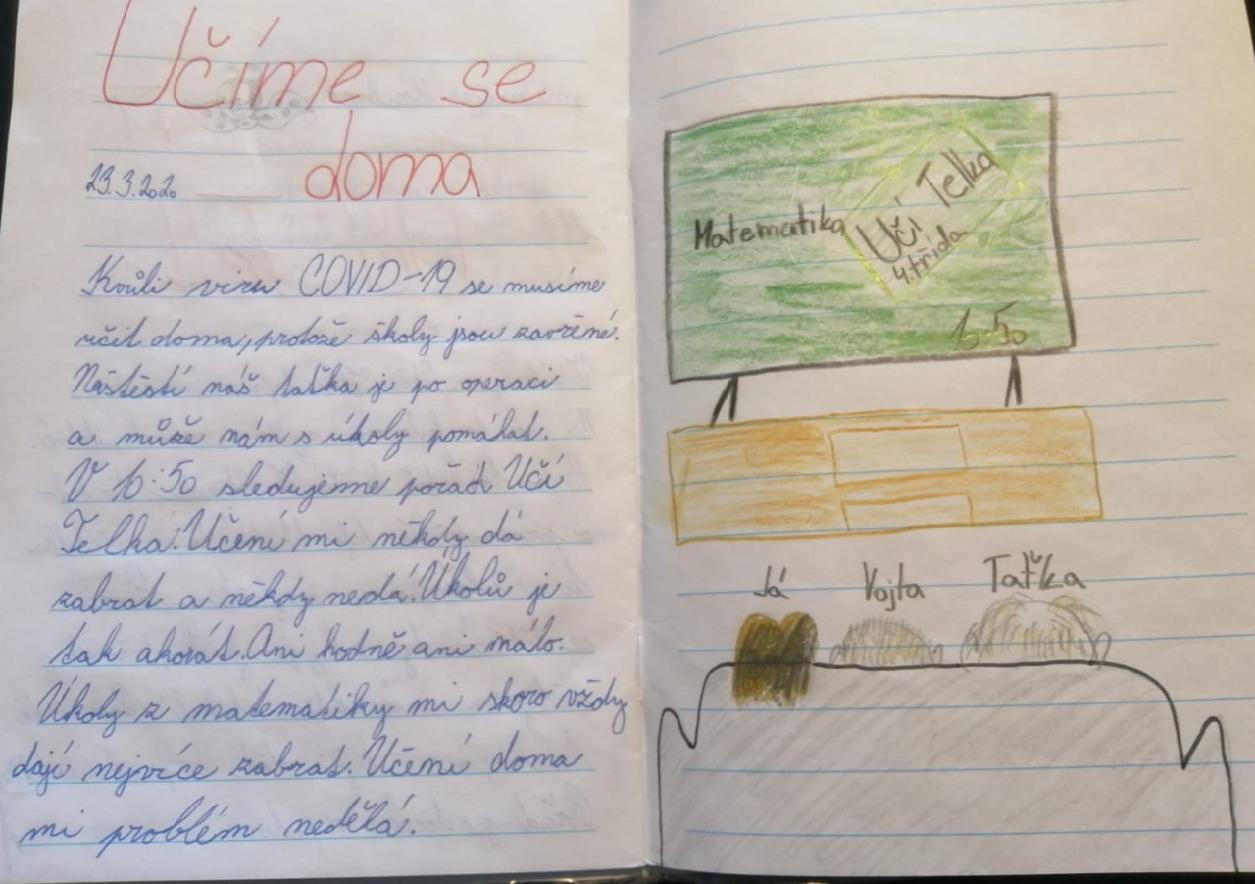 Učíme se
doma
23.3.2020
Kvůli viru COVID-19 se musíme
učit doma, protože školy jsou zavřené.
Naštěstí náš taťka je po operaci
a může nám s úkoly pomáhat.
V 10:50 sledujeme pořad Učí
Telka. Učení mi někdy dá
zabrat a někdy nedá. Úkolů je
tak akorát. Ani hodně ani málo.
Úkoly z matematiky mi skoro vždy
dají nejvíce zabrat. Učení doma
mi problém nedělá.
Matematika
Učí Telka
4. třída
10:50
Já Vojta Taťka